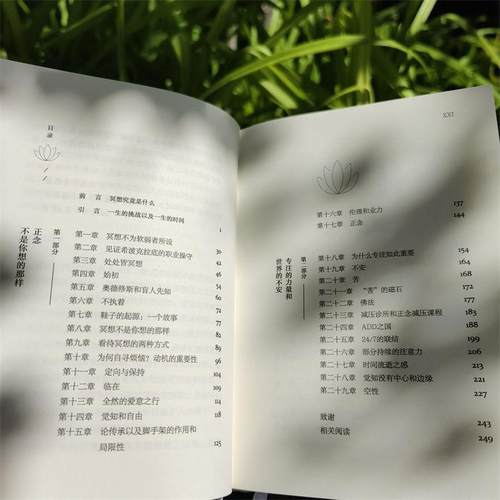 目录
前 言 冥想究竟是什么
引 言 一生的挑战以及一生的时间 1
第一部分
正念
不是你想的那样
第一章 冥想不为软弱者所设
第二章 见证希波克拉底的职业操守
第三章 处处皆冥想
第四章 始初
第五章 奥德修斯和盲人先知
第六章 不执着
第七章 鞋子的起源：一个故事
第八章 冥想不是你想的那样
第九章 看待冥想的两种方式
第十章 为何自寻烦恼？动机的重要性
第十一章 定向与保持 105
第十二章 临在
第十三章 全然的爱意之行
第十四章 觉知和自由
第十五章 论传承以及脚手架的作用和
局限性 125
XXI
第十六章 伦理和业力 137
第十七章 正念 144
第二部分
专注的力量和
世界的不安
第十八章 为什么专注如此重要 154
第十九章 不安 164
第二十章 苦 168
第二十一章 “苦”的磁石 172
第二十二章 佛法 177
第二十三章 减压诊所和正念减压课程 183
第二十四章 ADD之国 188
第二十五章 24/7的联结 199
第二十六章 部分持续的注意力 206
第二十七章 时间流逝之感 213
第二十八章 觉知没有中心和边缘 221
第二十九章 空性 227
致谢 243
相关阅读 249